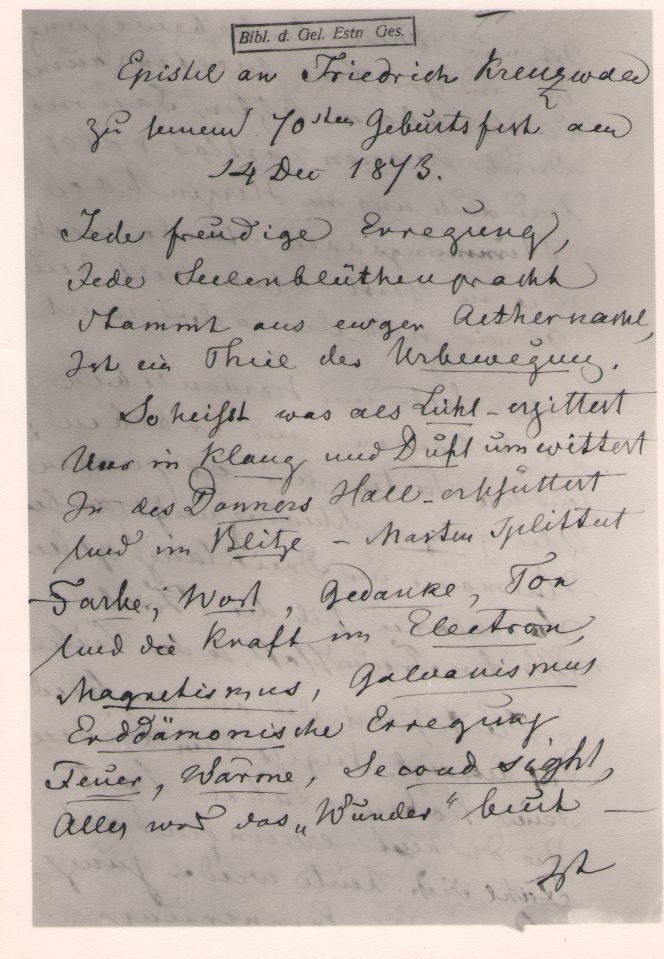 Bibl. d. Gel. Estn Ges.
Epistel an Friedrich Kreuzwald
zu seinem 70sten Geburtsfest am
14 Dec 1873.
Jede freudige Erregung,
Jede Seelenblüthenpracht
Stammt aus ewger Aethernacht,
Ist ein Theil der Urbewegung.
So heißt was als Licht - erzittert
Uns in Klang und Duft umwittert
In des Donners Hall - erschüttert
Und im Blitze - Masten splittert
Farbe, Wort, Gedanke, Ton
Und die Kraft im Electron,
Magnetismus, Galvanismus
Erddämonische Erregung
Feuer, Wärme, Second sight,
Alles was das „Wunder“ beut —
Ist